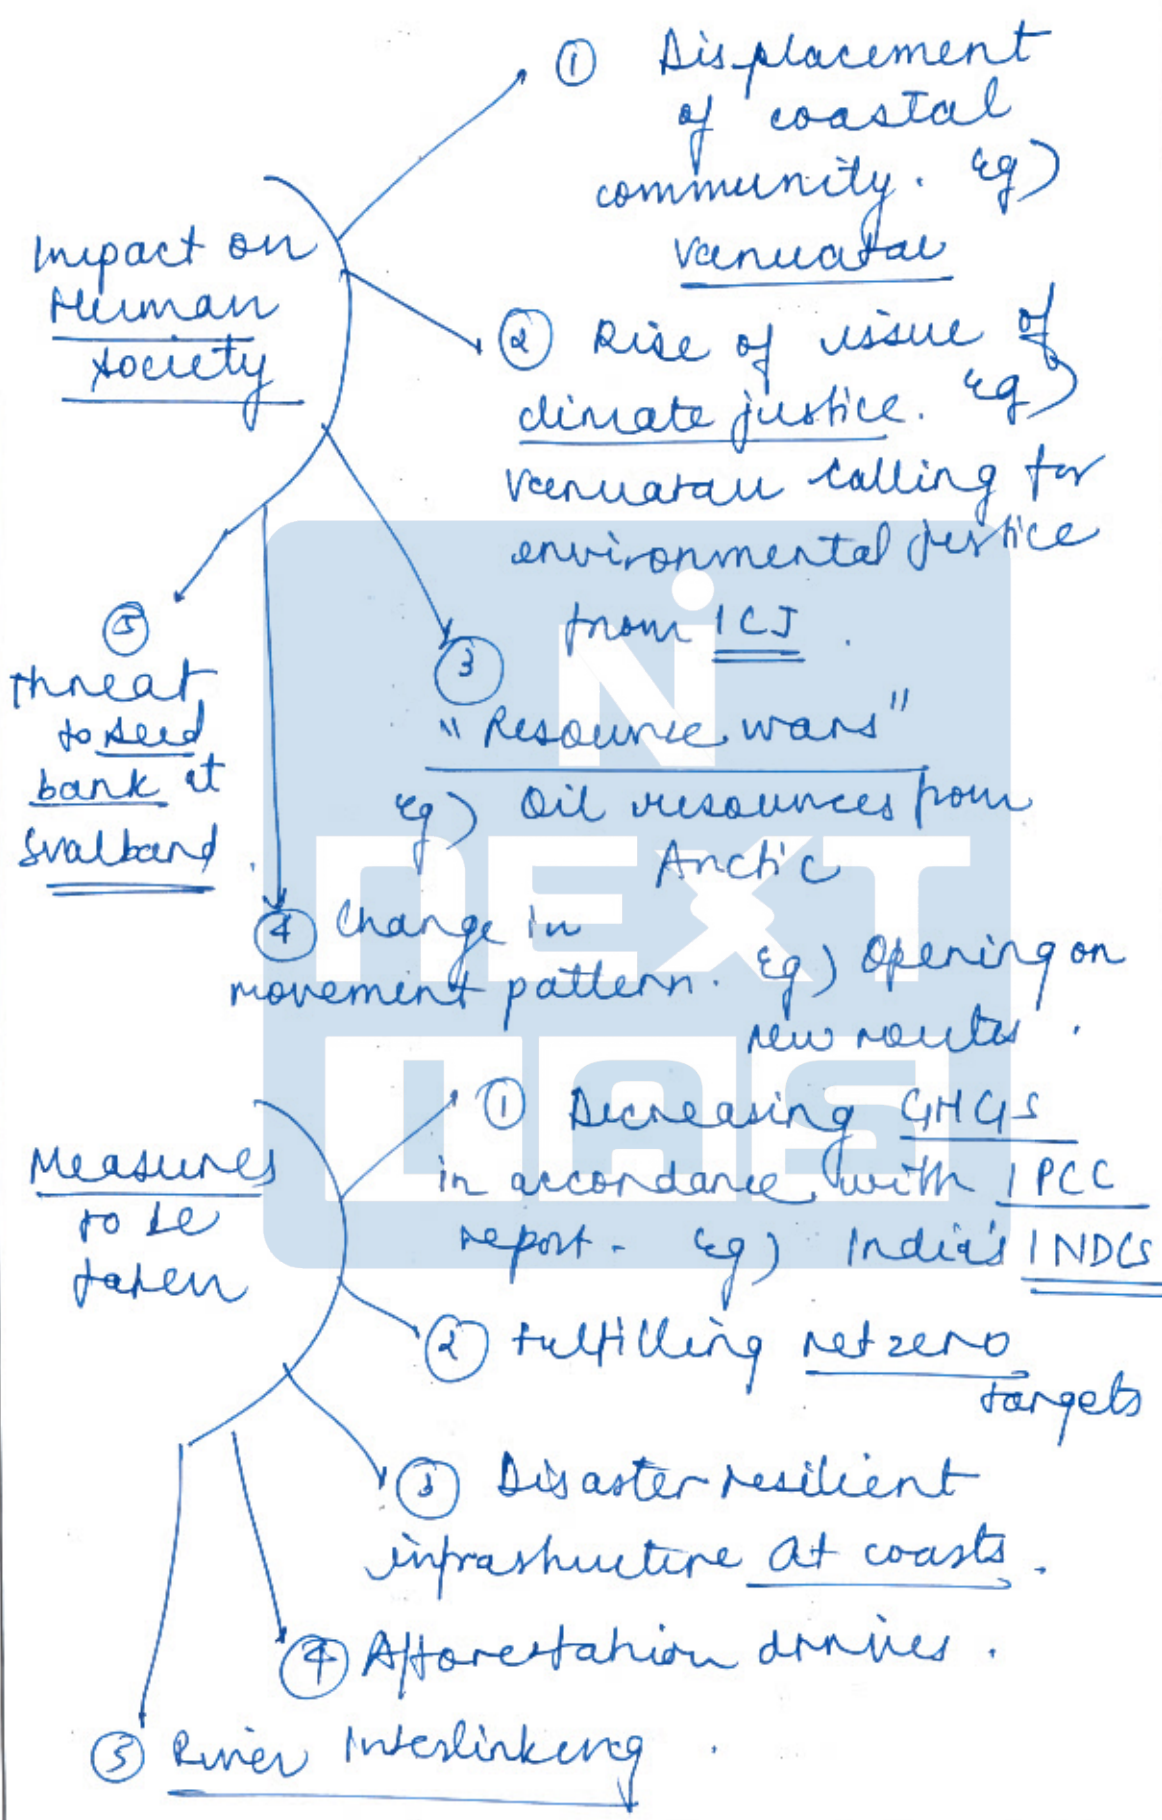 ① Displacement
of coastal
community. eg)
Vanuatau
Impact on
Human
society
② Rise of issue of
climate justice. eg)
Vanuatau calling for
environmental justice
from ICJ.
③
"Resource wars"
eg) Oil resources from
Arctic
④ Change in
movement pattern. eg) Opening on
new routes.
⑤
Threat
to seed
bank at
Svalband.
Measures
to be
taken
① Decreasing GHGs
in accordance with IPCC
report. eg) India's INDCs
② Fulfilling net zero
targets
③ Disaster resilient
infrastructure at coasts.
④ Afforestation drives.
⑤ River Interlinking.
NEXT
IAS